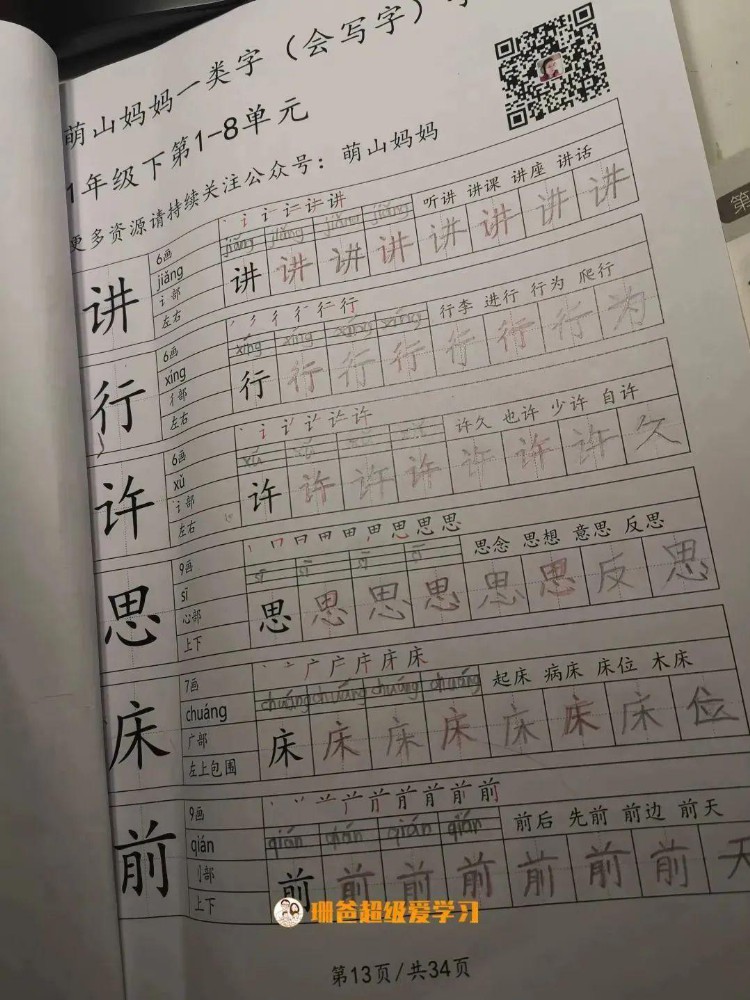 萌山妈妈一类字（会写字）
1年级下第1-8单元
更多资源请持续关注公众号：萌山妈妈
讲
6画
jiǎng
讠部
左右
听讲 讲课 讲座 讲话
jiǎng jiǎng jiǎng jiǎng
讲 讲 讲 讲 讲 讲 讲 讲
行
6画
xíng
彳部
左右
行李 进行 行为 爬行
xíng xíng xíng xíng
行 行 行 行 行 行 行 为
许
6画
xǔ
讠部
左右
许久 也许 少许 自许
xǔ
许 许 许 许 许 许 许 久
思
9画
sī
心部
上下
思念 思想 意思 反思
sī sī sī sī
思 思 思 思 思 思 反 思
床
7画
chuáng
广部
左上包围
起床 病床 床位 木床
chuáng chuáng chuáng chuáng
床 床 床 床 床 床 床 位
前
9画
qián
刂部
上下
前后 先前 前边 前天
qián qián qián qián
前 前 前 前 前 前 前 天
珊爸超级爱学习
第13页/共34页
第